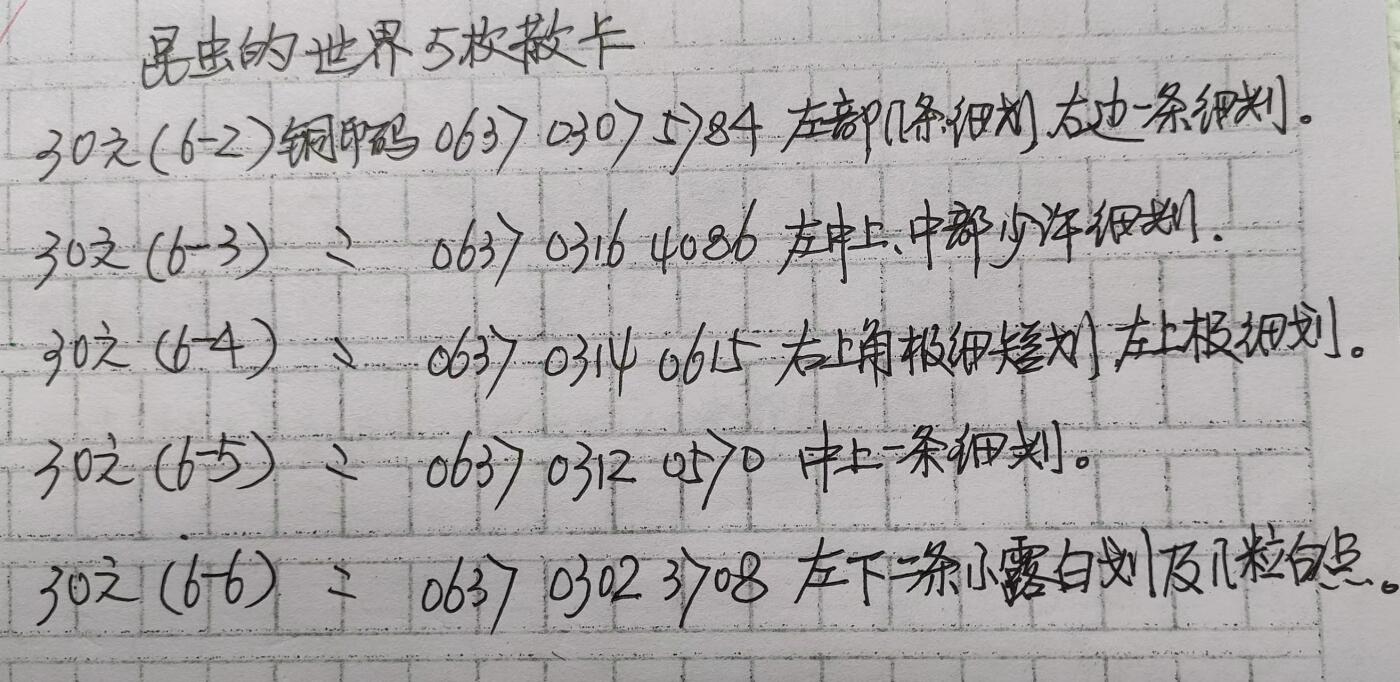 昆虫的世界5枚散卡
30元(6-2)钢印码 0637 0307 5784 左部几条细划 右边一条细划。
30元(6-3) 〃 0637 0316 4086 左中上、中部少许细划.
30元(6-4) 〃 0637 0314 0615 右上角极细短划 左上极细划。
30元(6-5) 〃 0637 0312 0570 中上一条细划。
30元(6-6) 〃 0637 0302 3708 左下二条小露白划及几粒白点。